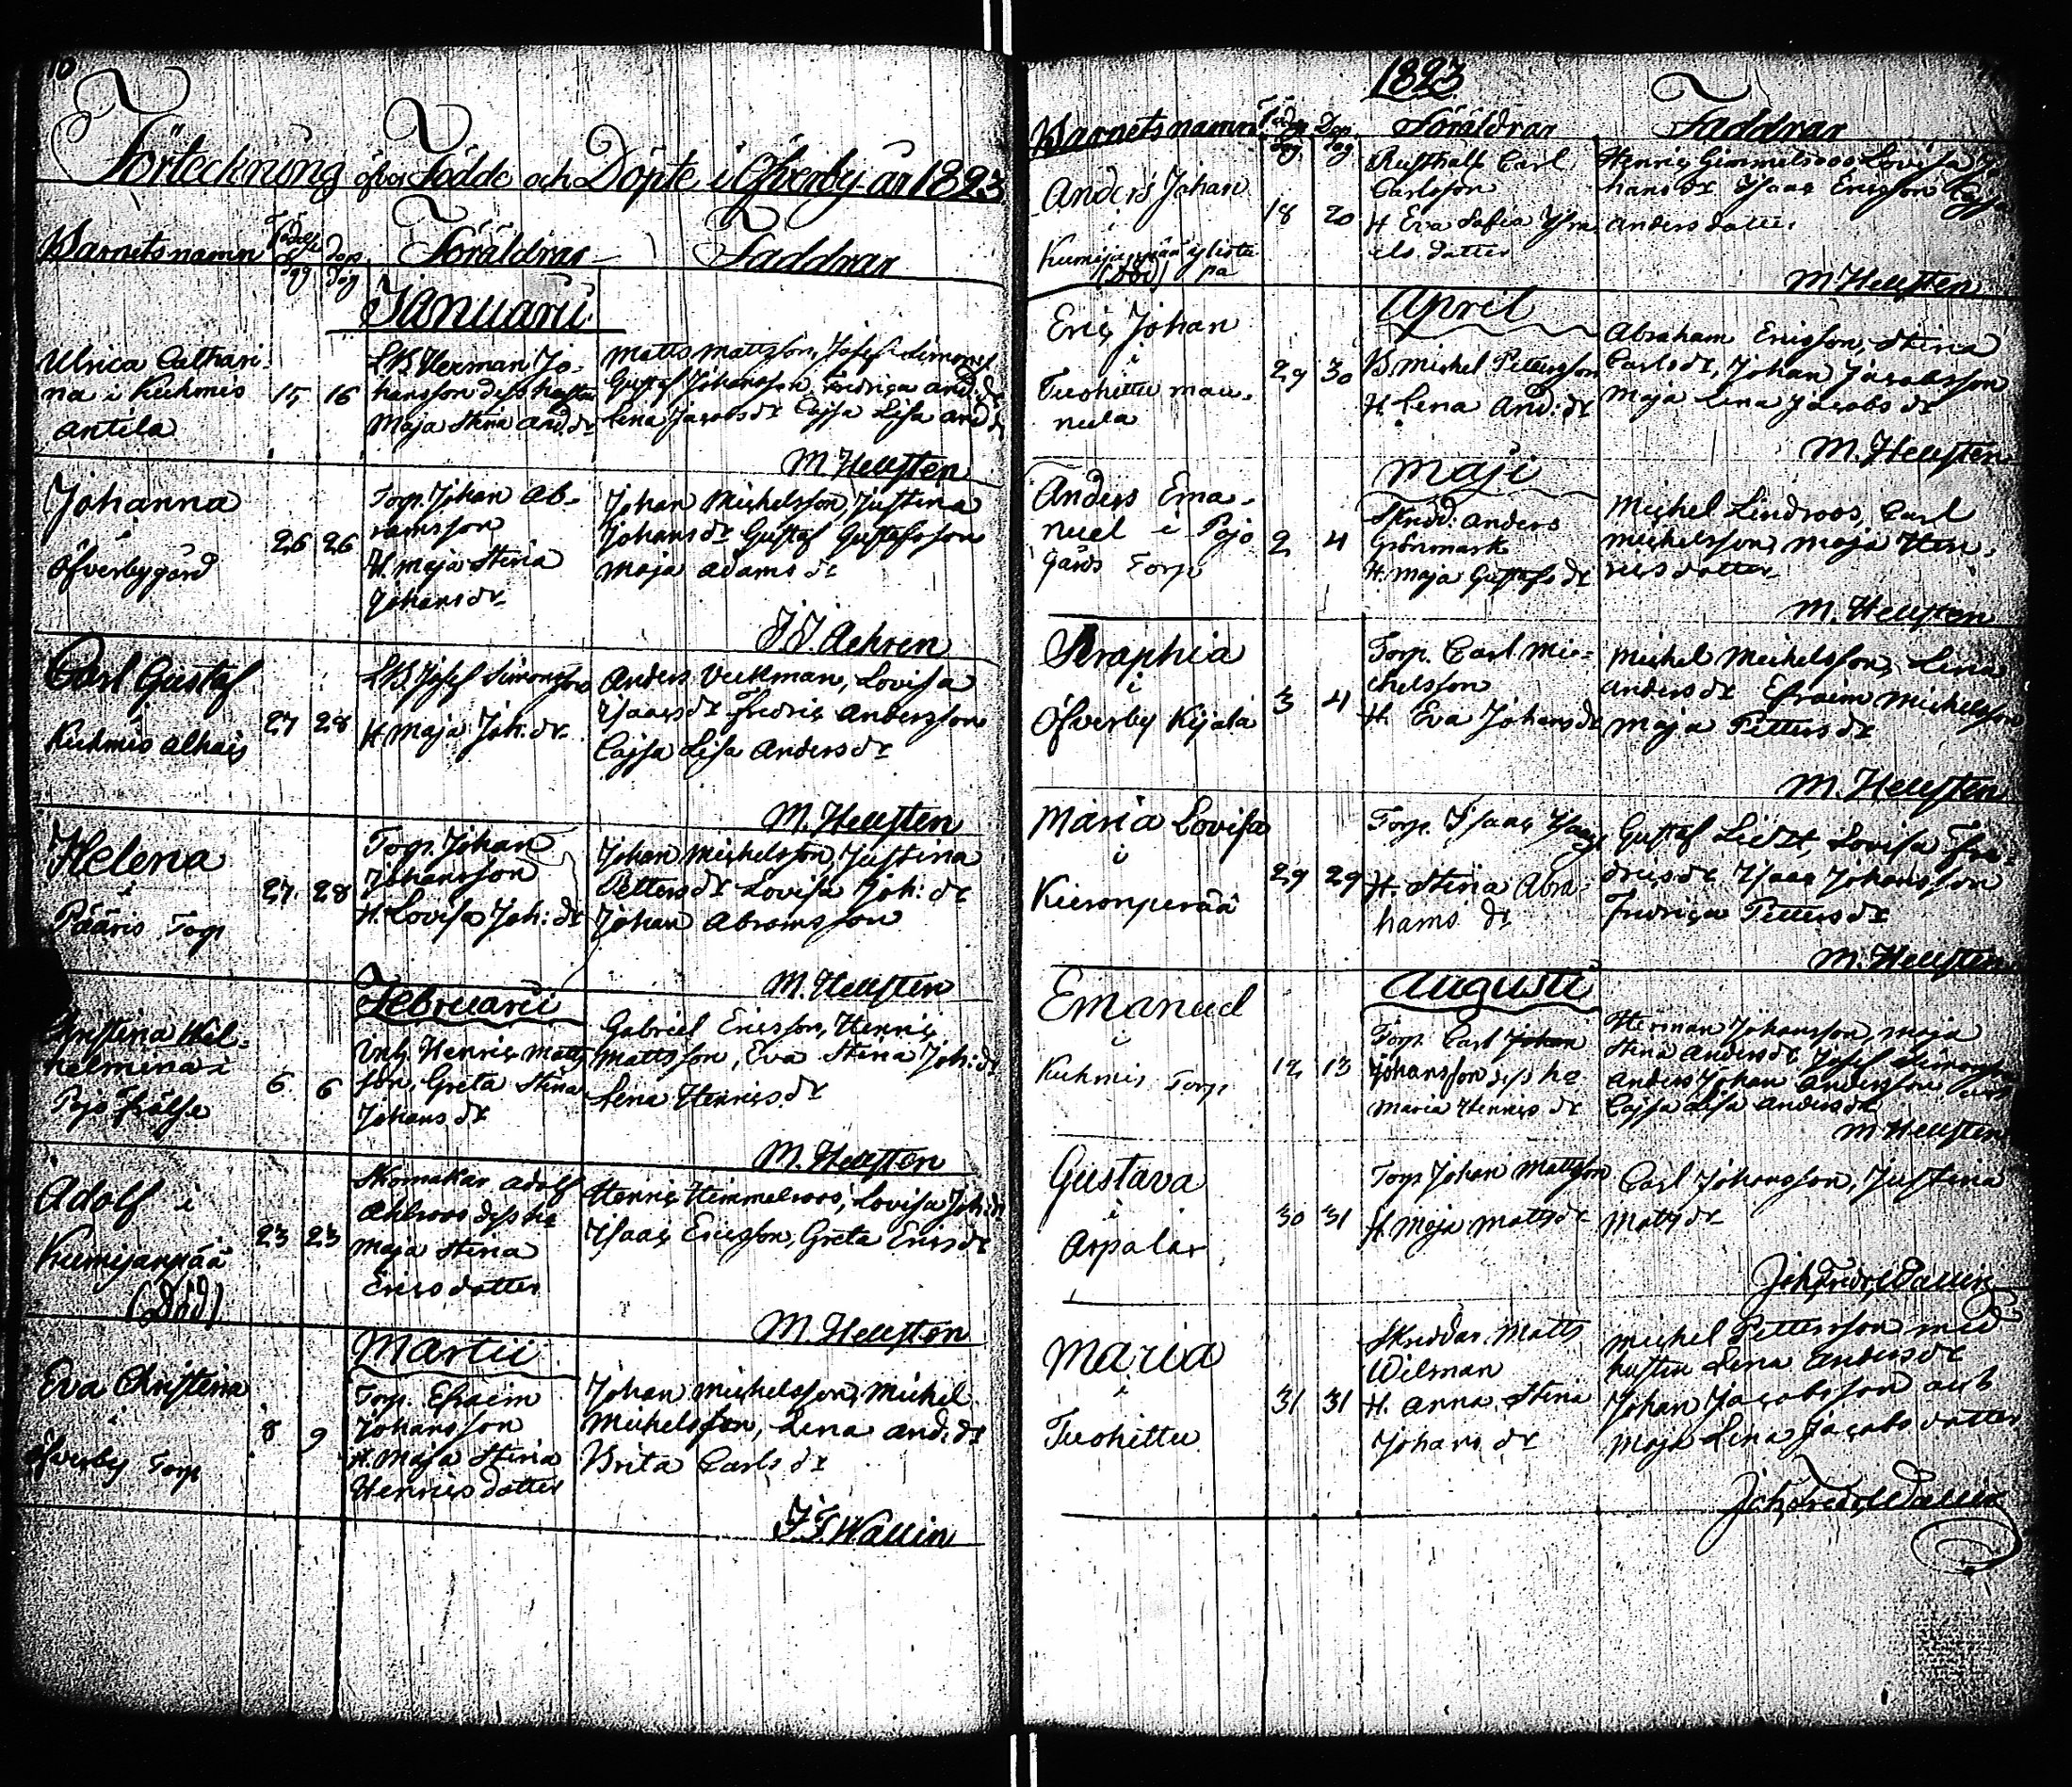 10
Förteckning öfver Födde och Döpte i Öfverby år 1823
Barnets namn Födelse dag Dop dag Föräldrar Faddrar
Januarii
Ulrica Cathari-
na i Kuhmis
Antila
15 16
LB. Herman Jo-
hansson dess hustru
Maja Stina And. dr
Matts Mattsson, Josef Simonss.
Gustaf Johansson, Fredrica And. dr
Lena Jacobs dr Cajsa Lisa And dr
M. Hellsten
Johanna
i
Öfverbygård
26 26
Torp. Johan Ab-
ramsson
H. Maja Stina
Johans dr
Johan Michelsson, Justina
Johans dr Gustaf Gustafsson
Maja Adams dr
J. J. Aehren
Carl Gustaf
i
Kuhmis Alhais
27 28
LB. Josef Simonsson
H Maja Joh. dr
Anders Veckman, Lovisa
Isaacs dr Fredric Andersson
Cajsa Lisa Anders dr
M. Hellsten
Helena
i
Pääris Torp
27. 28
Torp. Johan
Johansson
H. Lovisa Joh: dr
Johan Michelsson, Justina
Petters dr Lovisa Joh: dr
Johan Abramsson
M. Hellsten
Februarii
Christina Wil-
helmina i
Pojo Frälse
6 6
Inh. Henric Matts
son, Greta Stina
Johans dr
Gabriel Ericsson, Henric
Mattsson, Eva Stina Joh: dr
Lena Henrics dr
M. Hellsten
Adolf i
Kumijanpää
(Död)
23 23
Skomakar Adolf
Ahlroos dess hu
Maja Stina
Erics dotter
Henric Himmelroos, Lovisa Joh: dr
Isaac Ericsson, Greta Erics dr
M. Hellsten
Martii
Eva Christina
i
Öfverby Torp
8 9
Torp. Efraim
Johansson
H. Maja Stina
Henrics dotter
Johan Michelsson, Michel
Michelsson, Lena And. dr
Brita Carls dr
J. F. Wallin
1823
Barnets namn Födelse dag Dop dag Föräldrar Faddrar
Anders Johan
i
Kumijanpää
(Död)
18 20
Rusthåll Carl
Carlsson
H Eva Sofia Isra
els dotter
Henric Lovisa Jo
hans dr Isaac Ericsson Cajsa
Anders dotter
M. Hellsten
April
Eric Johan
i
Tuohittu mau-
nula
29 30
B Michel Pettersson
H. Lena And: dr
Abraham Ericsson, Stina
Carls dr, Johan Jacobsson
Maja Lena Jacobs dr
M. Hellsten
Maji
Anders Ema-
nuel i Pojo
gårds Torp
2 4
Skrädd: Anders
Grönmark
H. Maja Gustafs dr
Michel Lindroos, Carl
Michelsson, Maja Hen-
rics dotter
M. Hellsten
Seraphia
i
Öfverby Kijala
3 4
Torp. Carl Mic-
chelsson
H. Eva Johans dr
Michel Michelsson, Lena
Anders dr Efraim Michelsson
Maja Petters dr
M. Hellsten
Maria Lovisa
i
Kieronperää
29 29
Torp. Isaac Isacs
H. Stina Abra-
hams dr
Gustaf Lidzt, Lovisa Fre-
drics dr Isaac Johansson
Fredrica Petters dr
M. Hellsten
Augusti
Emanuel
i
Kuhmis Torp
12 13
Torp. Carl Johan
Johansson dess hu.
Maria Henrics dr
Herman Johansson, Maja
Stina Anders dr Josef Simonsson
Anders Johan Andersson
Cajsa Lisa Anders dr
M Hellsten
Gustava
i
Arpalax
30 31
Torp Johan Mattsson
H. Maja Matts dr
Carl Johansson, Justina
Matts dr
Joh. Fredr. Wallin
Maria
i
Tuohittu
31 31
Skräddar. Matts
Wilman
H. Anna Stina
Johans dr
Michel Pettersson med
hustru Lena Anders dr
Johan Jacobsson och
Maja Lena Jacobs dotter
Joh. Fredr. Wallin